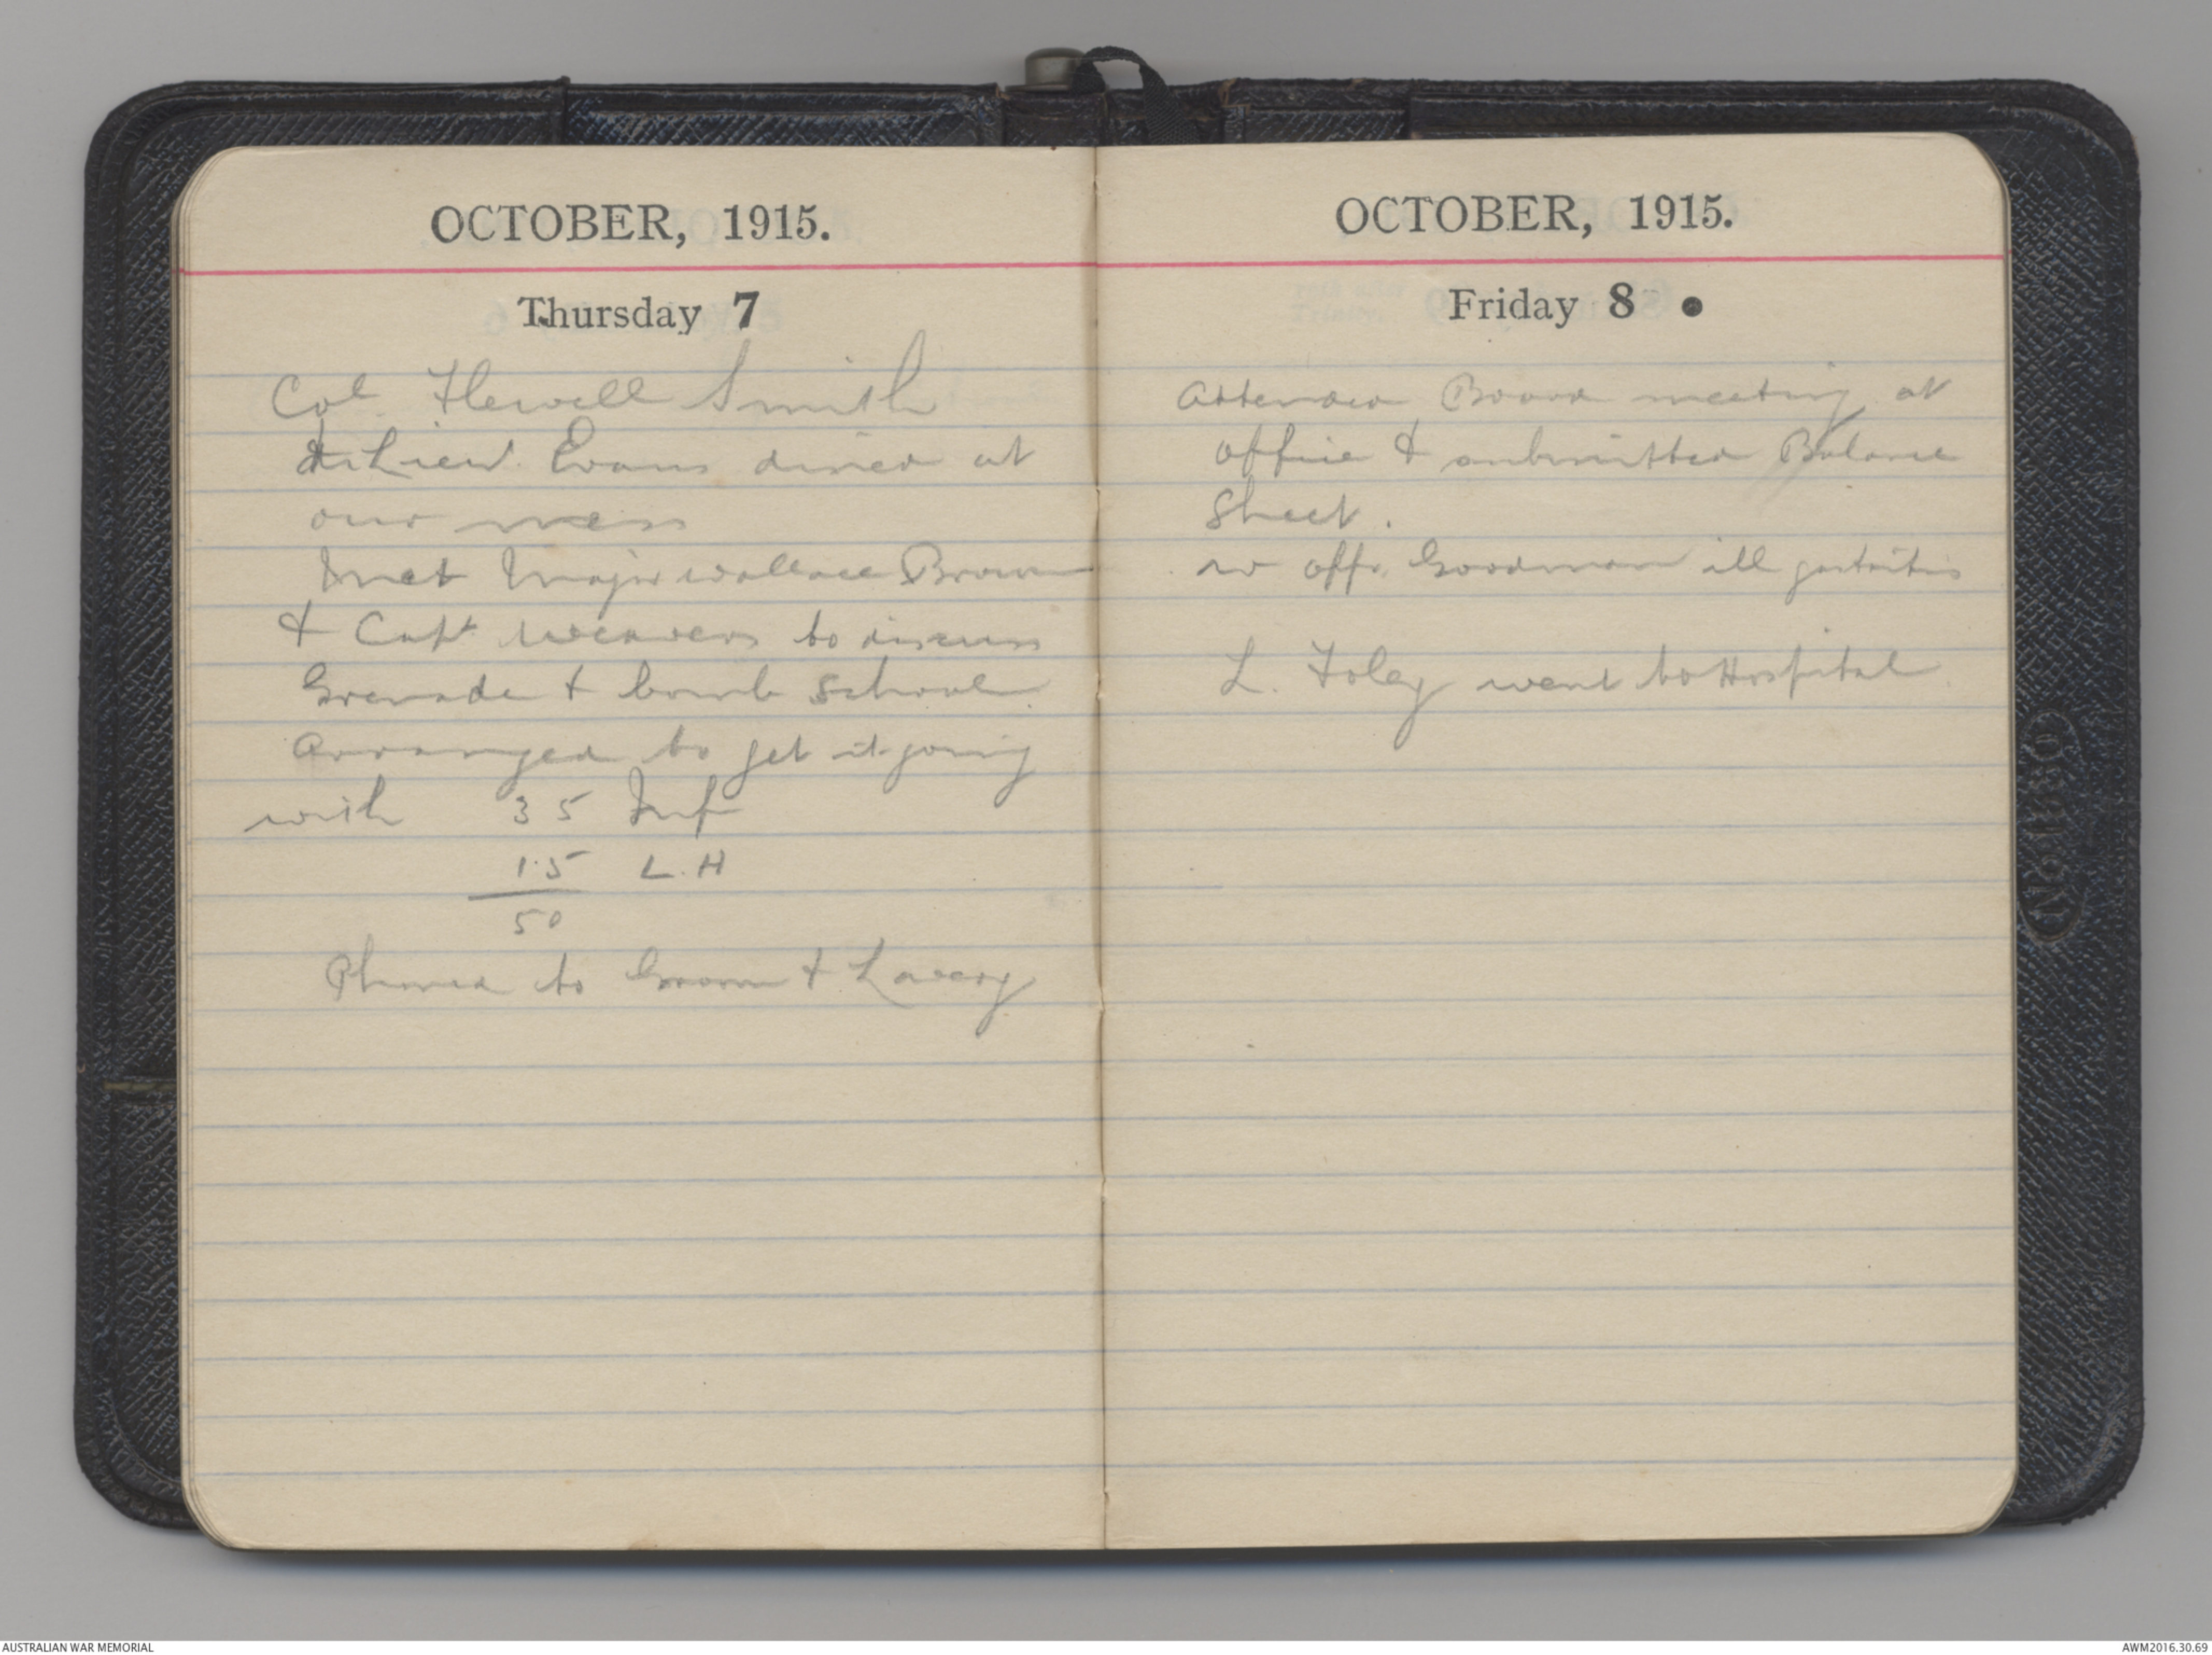 OCTOBER, 1915.
Thursday 7
Col. Hewell Smith
& Lieut. Evans dined at
our mess
Met Major Wallace Brown
& Capt Weavers to discuss
Grenade & bomb School.
Arranged to get it going
with 35 Inf
15 L.H
50
Phoned to Groom & Lavery
OCTOBER, 1915.
Friday 8
Attended Board meeting at
Office & submitted Balance
Sheet.
W Offr. Goodman ill gastritis
L. Foley went to Hospital
AUSTRALIAN WAR MEMORIAL
AWM2016.30.69